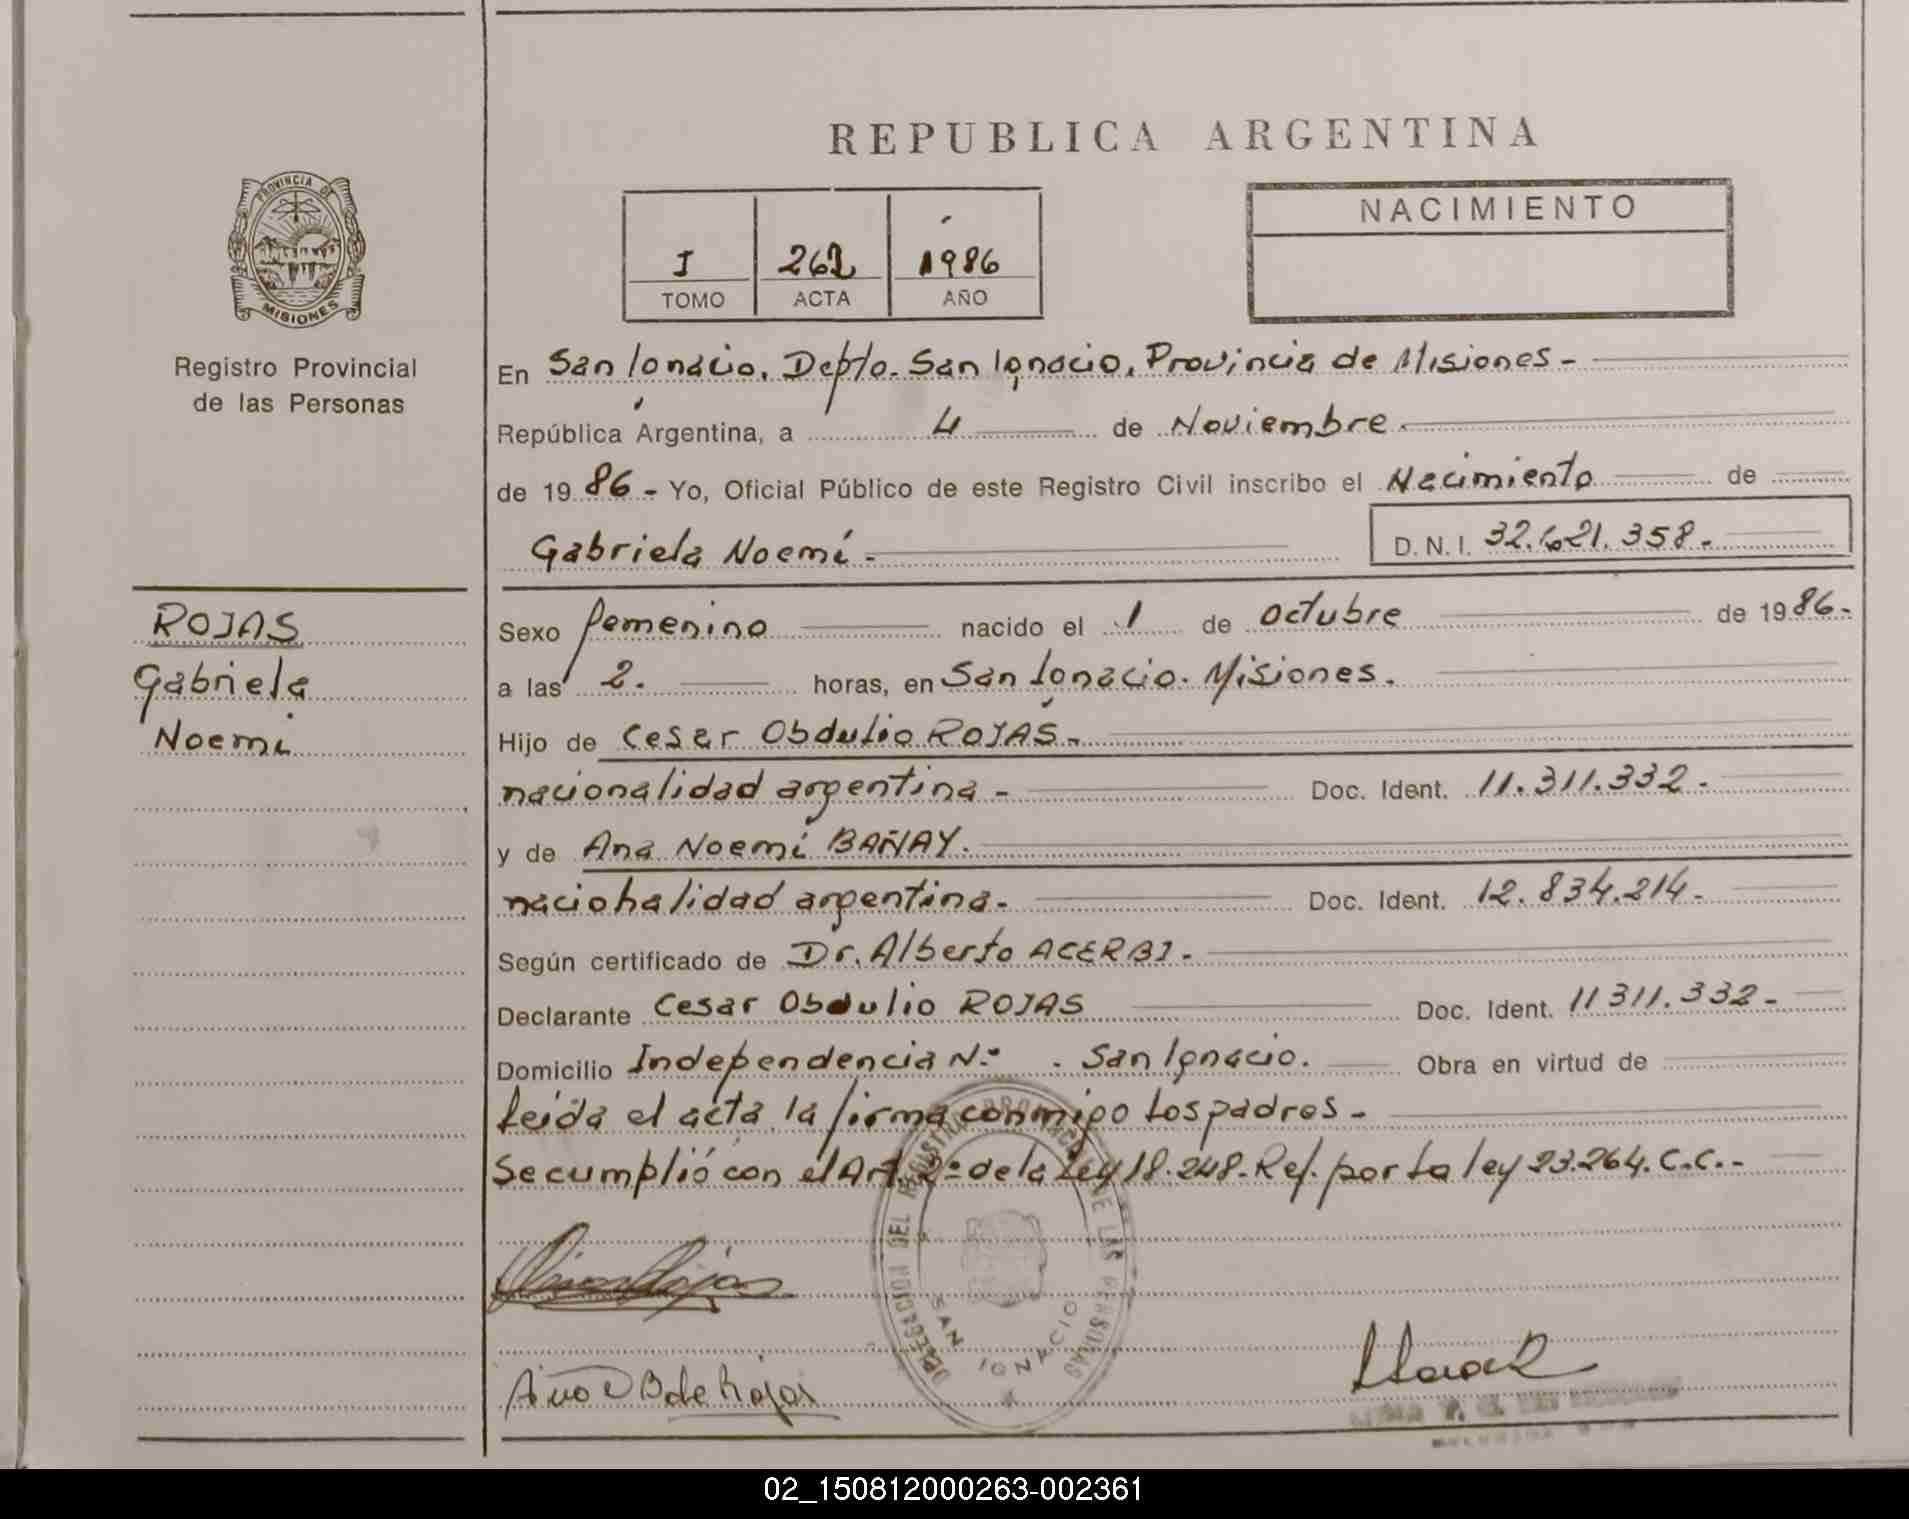 REPUBLICA ARGENTINA
PROVINCIA DE
MISIONES
Registro Provincial
de las Personas
I 262 1986
TOMO ACTA AÑO
NACIMIENTO
En San Ignacio, Depto. San Ignacio, Provincia de Misiones -
República Argentina, a 4 de Noviembre.
de 1986 - Yo, Oficial Público de este Registro Civil inscribo el Nacimiento de
Gabriela Noemí - D. N. I. 32.621.358.-
ROJAS
Gabriela
Noemi
Sexo femenino nacido el 1 de octubre de 1986.-
a las 2. horas, en San Ignacio. Misiones.
Hijo de Cesar Obdulio ROJAS.-
nacionalidad argentina - Doc. Ident. 11.311.332.-
y de Ana Noemí BAÑAY.
nacionalidad argentina.- Doc. Ident. 12.834.214.-
Según certificado de Dr. Alberto ACERBI.-
Declarante Cesar Obdulio ROJAS Doc. Ident. 11311.332-
Domicilio Independencia N.º . San Ignacio. Obra en virtud de
leída el acta, la firma conmigo los padres -
Se cumplió con el Art. 2º de la Ley 18.248. Ref. por la ley 23.264. C.C.-
DELEGACION DEL REGISTRO PROVINCIAL DE LAS PERSONAS
SAN IGNACIO
B de Rojas
02_150812000263-002361